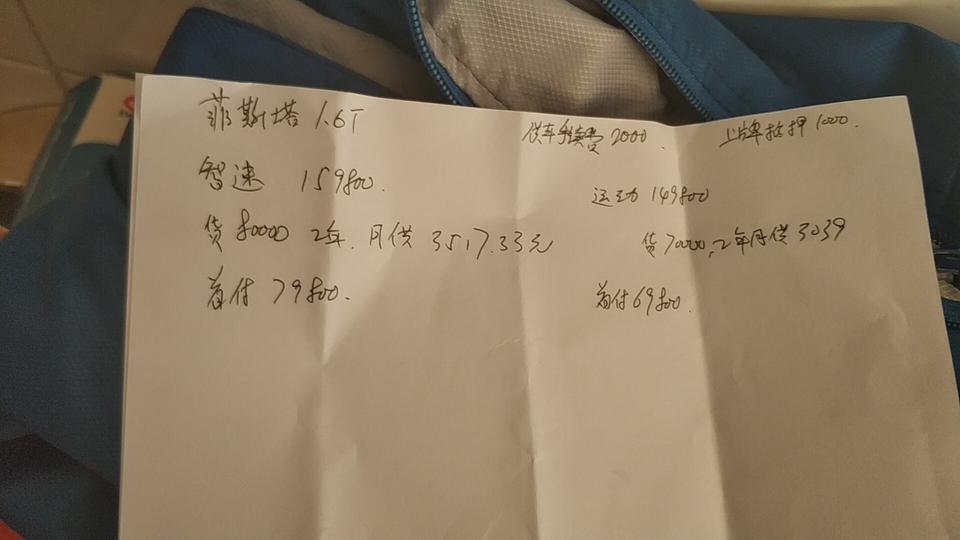 菲斯塔 1.6T
供车手续费 2000
上牌抵押 1000.
智速 159800.
运动 149800
贷 80000 2年. 月供 3517.33元
贷70000, 2年月供 3039
首付 79800.
首付 69800.